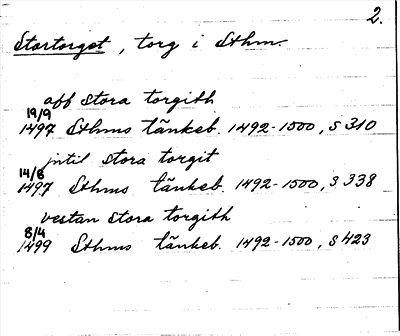 2.
Stortorget, torg i Sthm.
aff stora torgith
19/9
1497 Sthms tänkeb. 1492-1500, s 310
jntil stora torgit
14/8
1497 Sthms tänkeb. 1492-1500, s. 338
vestan stora torgith
8/4
1499 Sthms tänkeb. 1492-1500, s 423